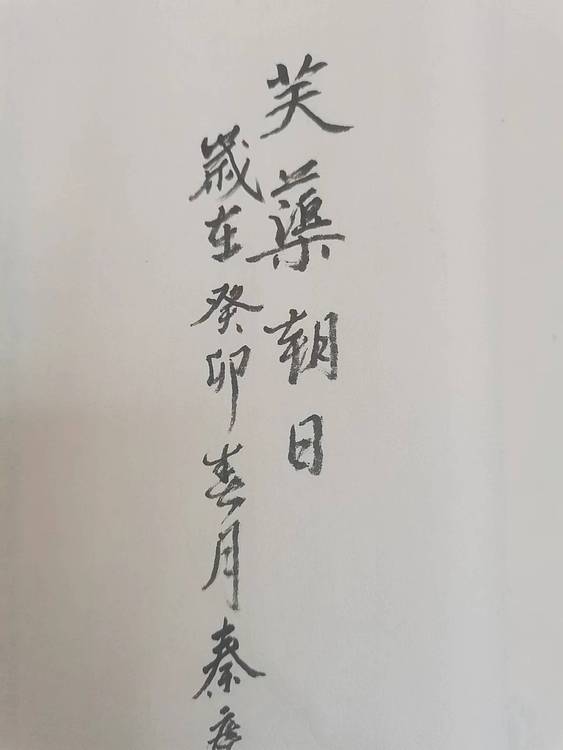 芙蕖朝日
歲在癸卯春月秦